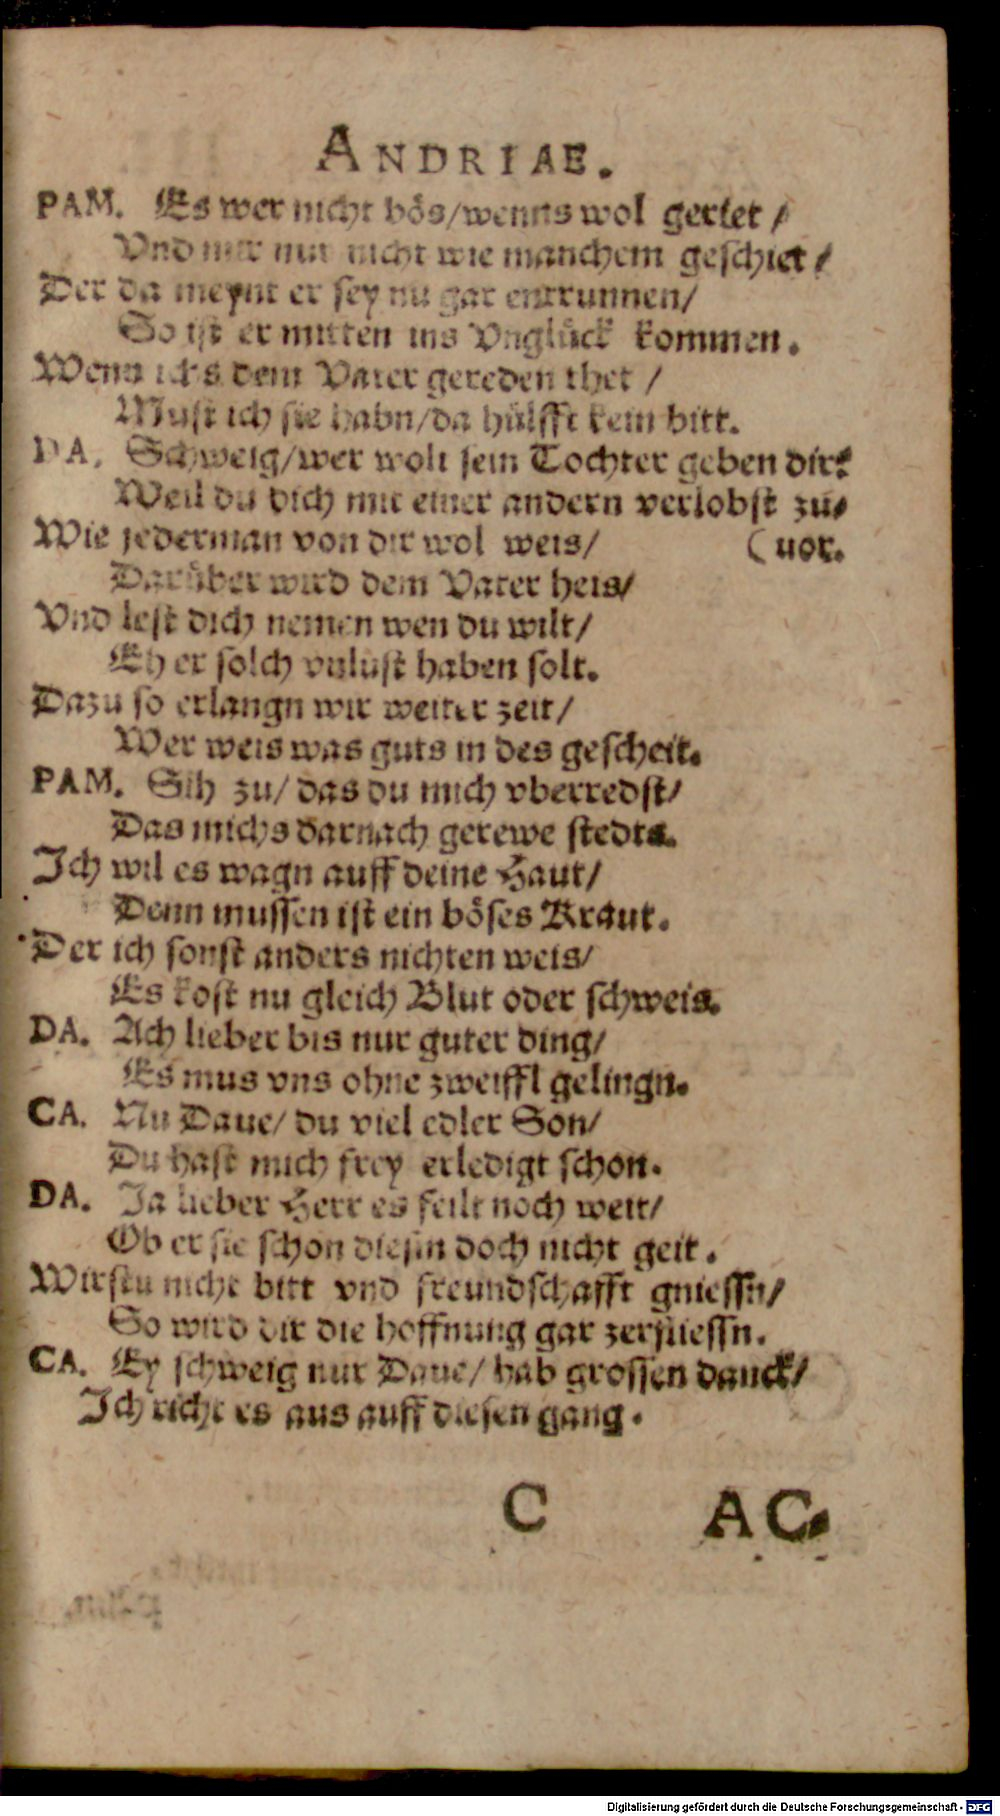 ANDRIAE.
PAM. Es wer nicht bös/wenns wol geriet/
Vnd mir nur nicht wie manchem geschiet/
Der da meynt er sey nu gar entrunnen/
So ist er mitten ins Vnglück kommen.
Wenn ichs dem Vater gereden thet/
Must ich sie habn/da hülfft kein bitt.
DA. Schweig/wer wolt sein Tochter geben dir?
Weil du dich mit einer andern verlobst zu-
Wie jederman von dir wol weis/ (uor.
Darüber wird dem Vater heis/
Vnd lest dich nemen wen du wilt/
Eh er solch vnlust haben solt.
Dazu so erlangn wir weiter zeit/
Wer weis was guts in des gescheit.
PAM. Sih zu/ das du mich vberredst/
Das michs darnach gerewe stedts.
Ich wil es wagn auff deine Haut/
Denn mussen ist ein böses Kraut.
Der ich sonst anders nichten weis/
Es kost nu gleich Blut oder schweis.
DA. Ach lieber bis nur guter ding/
Es mus vns ohne zweiffl gelingn.
CA. Nu Daue/ du viel edler Son/
Du hast mich frey erledigt schon.
DA. Ja lieber Herr es feilt noch weit/
Ob er sie schon diesm doch nicht geit.
Wirstu nicht bitt vnd freundschafft gniessn/
So wird dir die hoffnung gar zerfliessn.
CA. Ey schweig nur Daue/ hab grossen danck/
Ich richt es aus auff diesen gang.
C AC-
Digitalisierung gefördert durch die Deutsche Forschungsgemeinschaft - DFG